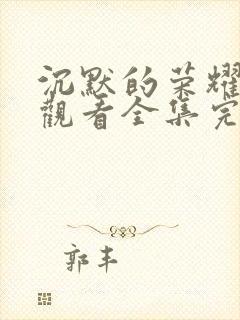 沉默的荣耀
觀看全集完
郭丰